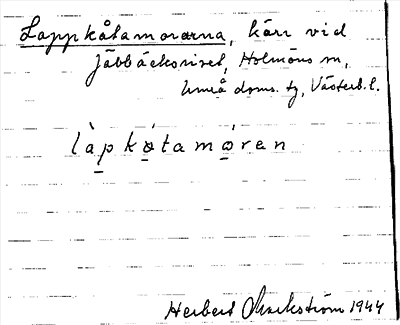 Lappkåtamorarna, kärr vid
Jäbbäcksnivet, Holmöns sn,
Umeå doms. tg, Västerb. l.
làpkåtamóren
Herbert Markström 1944